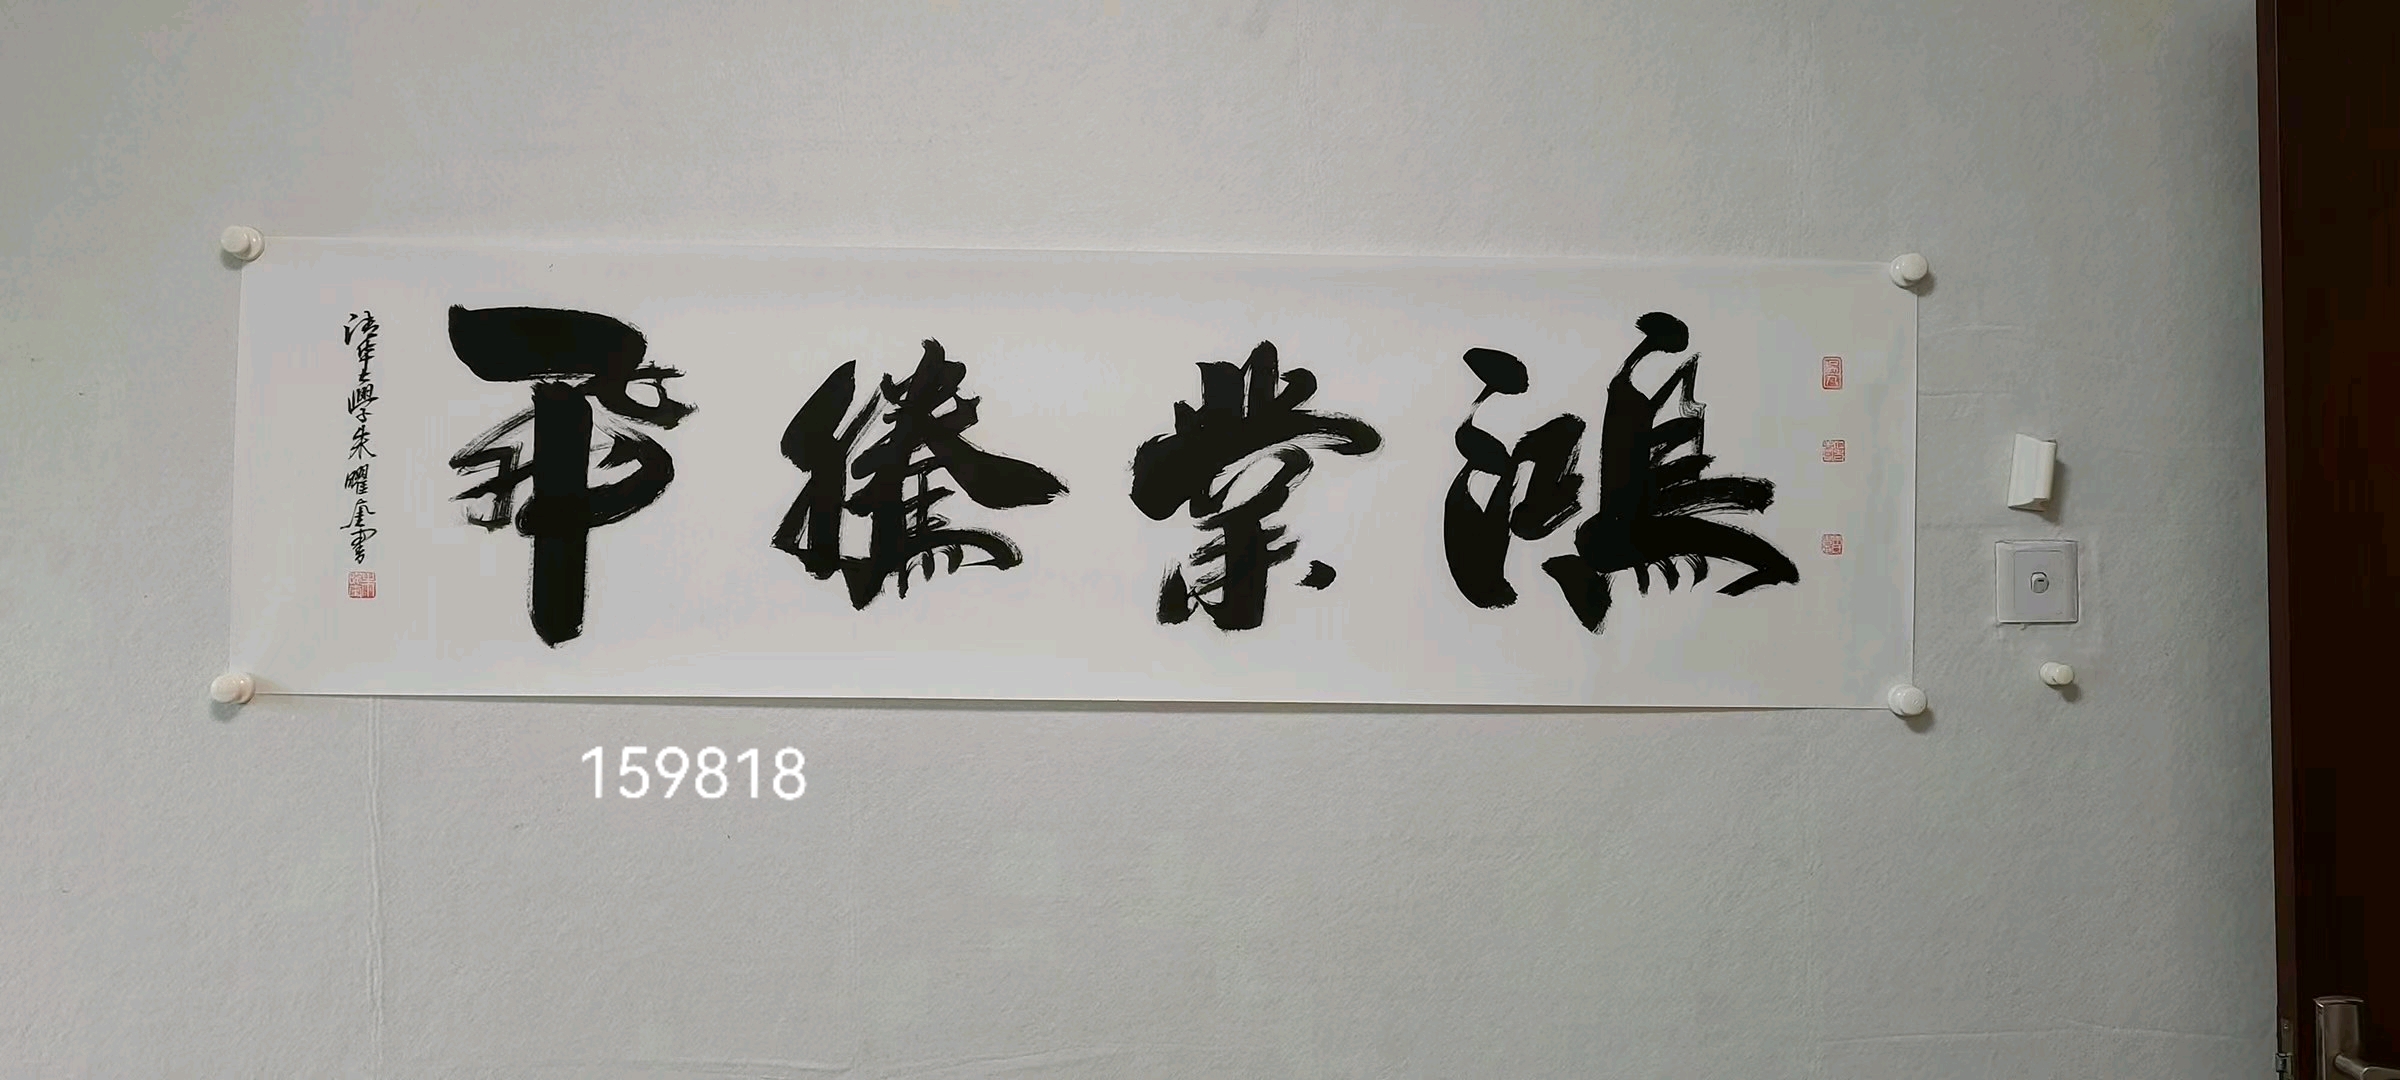 鴻業騰飛
清華大學朱曜奎書
159818